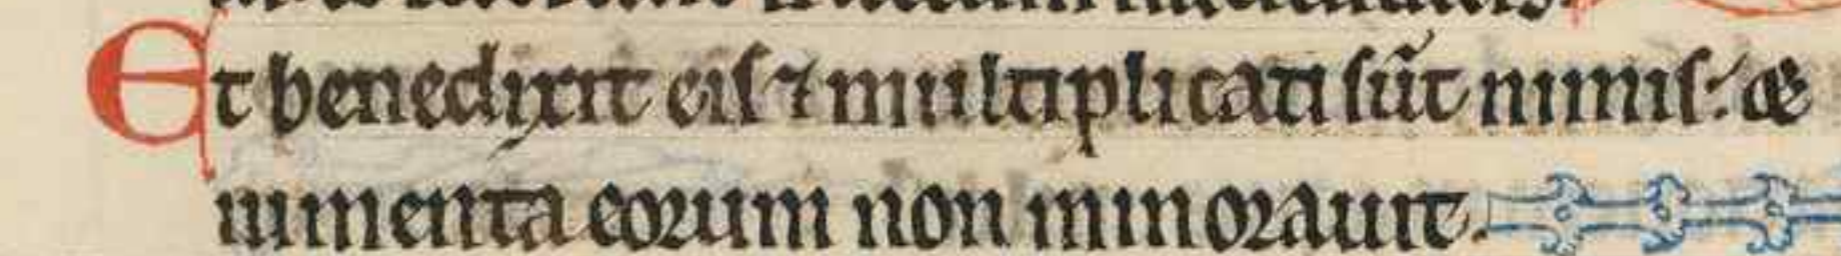 Et benedixit eis ⁊ multiplicati sūt nimis: &
iumenta eorum non minorauit.